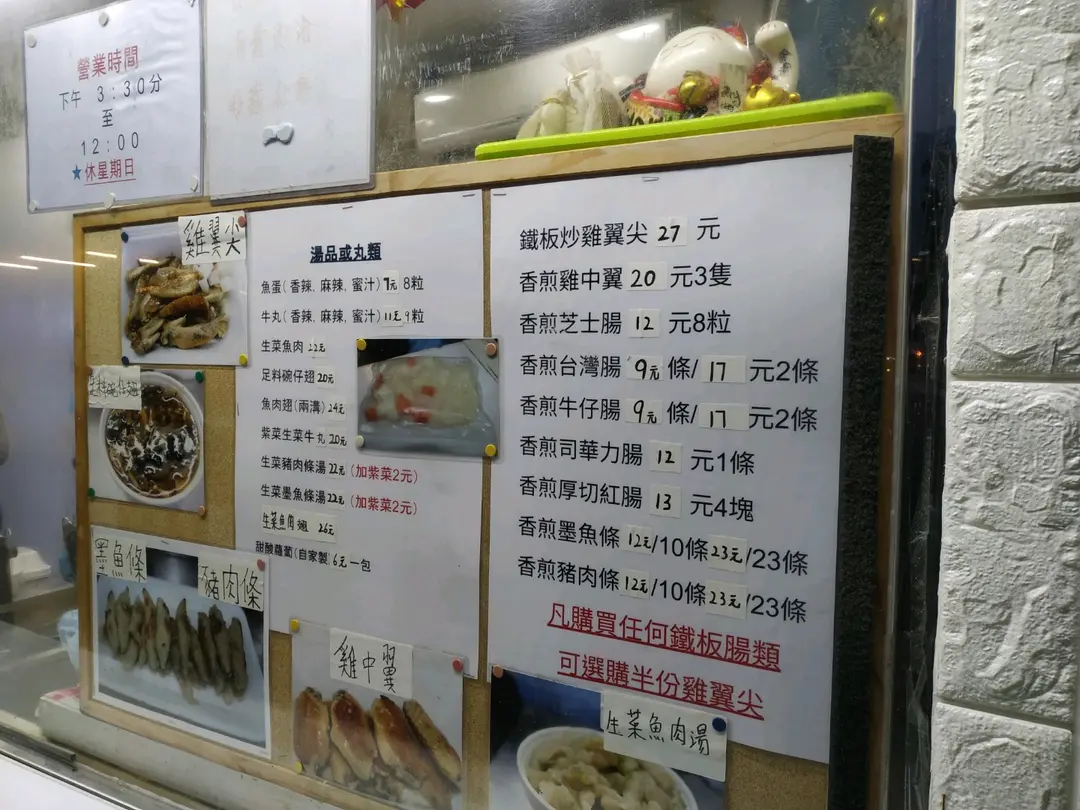 營業時間
下午 3:30分
至
12:00
★休星期日
雞翼尖
生料碗仔翅
墨魚條
豬肉條
雞中翼
生菜魚肉湯
湯品或丸類
魚蛋(香辣, 麻辣, 蜜汁)7元 8粒
牛丸(香辣, 麻辣, 蜜汁)11元 9粒
生菜魚肉 22元
足料碗仔翅 20元
魚肉翅(兩溝) 24元
紫菜生菜牛丸 20元
生菜豬肉條湯 22元 (加紫菜2元)
生菜墨魚條湯 22元 (加紫菜2元)
生菜魚肉翅 26元
甜酸蘿蔔(自家製) 6元 一包
鐵板炒雞翼尖 27 元
香煎雞中翼 20 元3隻
香煎芝士腸 12 元8粒
香煎台灣腸 9元 條/ 17 元2條
香煎牛仔腸 9元 條/ 17 元2條
香煎司華力腸 12 元1條
香煎厚切紅腸 13 元4塊
香煎墨魚條 12元/10條 23元/23條
香煎豬肉條 12元/10條 23元/23條
凡購買任何鐵板腸類
可選購半份雞翼尖